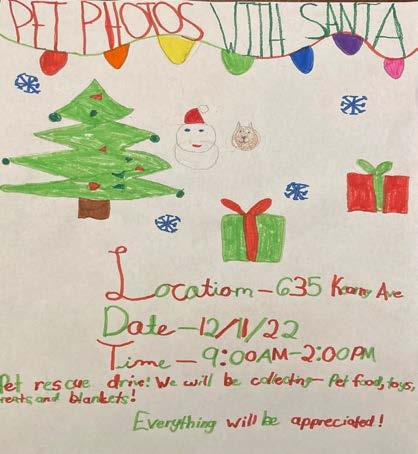 PET PHOTOS WITH SANTA
Location - 635 Kearny Ave
Date - 12/11/22
Time - 9:00AM-2:00PM
Pet rescue drive! We will be collecting - Pet food, toys,
reats and blankets!
Everything will be appreciated!